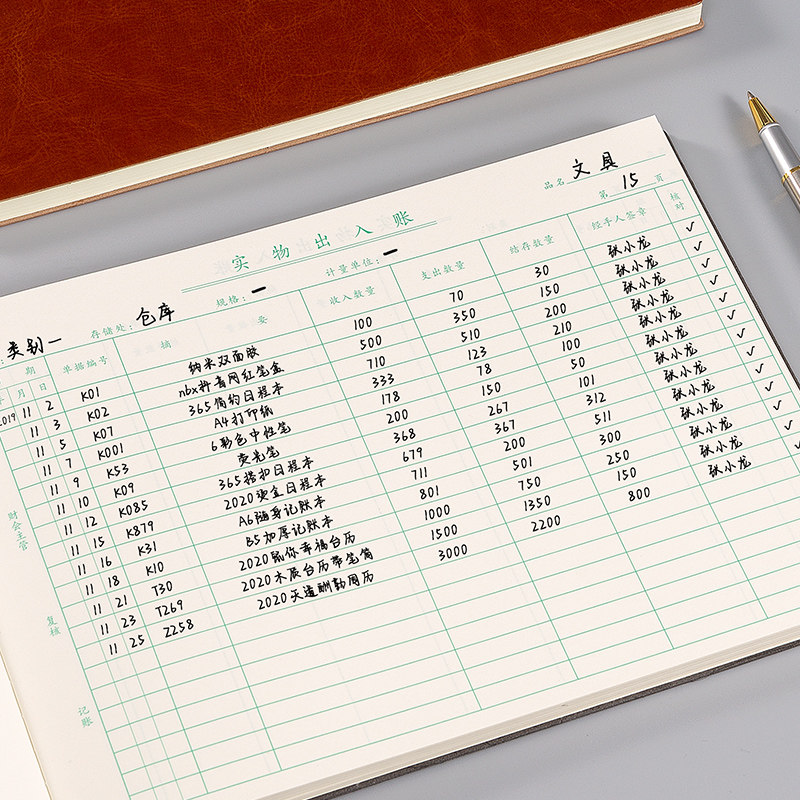 文具
品名
第 15 页
实物出入账
类别一 存储处: 仓库 规格: — 计量单位: —
期 单据编号 摘要 收入数量 支出数量 结存数量 经手人签章 核对
月 日
2019 11 2 K01 纳米双面胶 100 70 30 张小龙 ✓
11 3 K02 nbx抖音网红笔盒 500 350 150 张小龙 ✓
11 5 K07 365简约日程本 710 510 200 张小龙 ✓
11 7 K001 A4打印纸 333 123 210 张小龙 ✓
11 9 K53 6彩色中性笔 178 78 100 张小龙 ✓
11 10 K09 荧光笔 200 150 50 张小龙 ✓
11 12 K085 365搭扣日程本 368 267 101 张小龙 ✓
11 15 K879 2020烫金日程本 679 367 312 张小龙 ✓
11 16 K31 A6随身记账本 711 200 511 张小龙 ✓
11 18 K10 B5加厚记账本 801 501 300 张小龙 ✓
11 21 T30 2020鼠你幸福台历 1000 750 250 张小龙 ✓
11 23 T269 2020木质台历带笔筒 1500 1350 150 张小龙 ✓
11 25 2258 2020天道酬勤周历 3000 2200 800 张小龙 ✓
财会主管
复核
记账